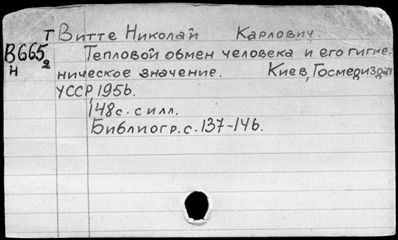 Т Витте Николай Карлович
В665₂ Тепловой обмен человека и его гигие-
Н ническое значение. Киев, Госмедиздат
УССР 1956.
148с. с илл.
Библиогр. с. 137-146.